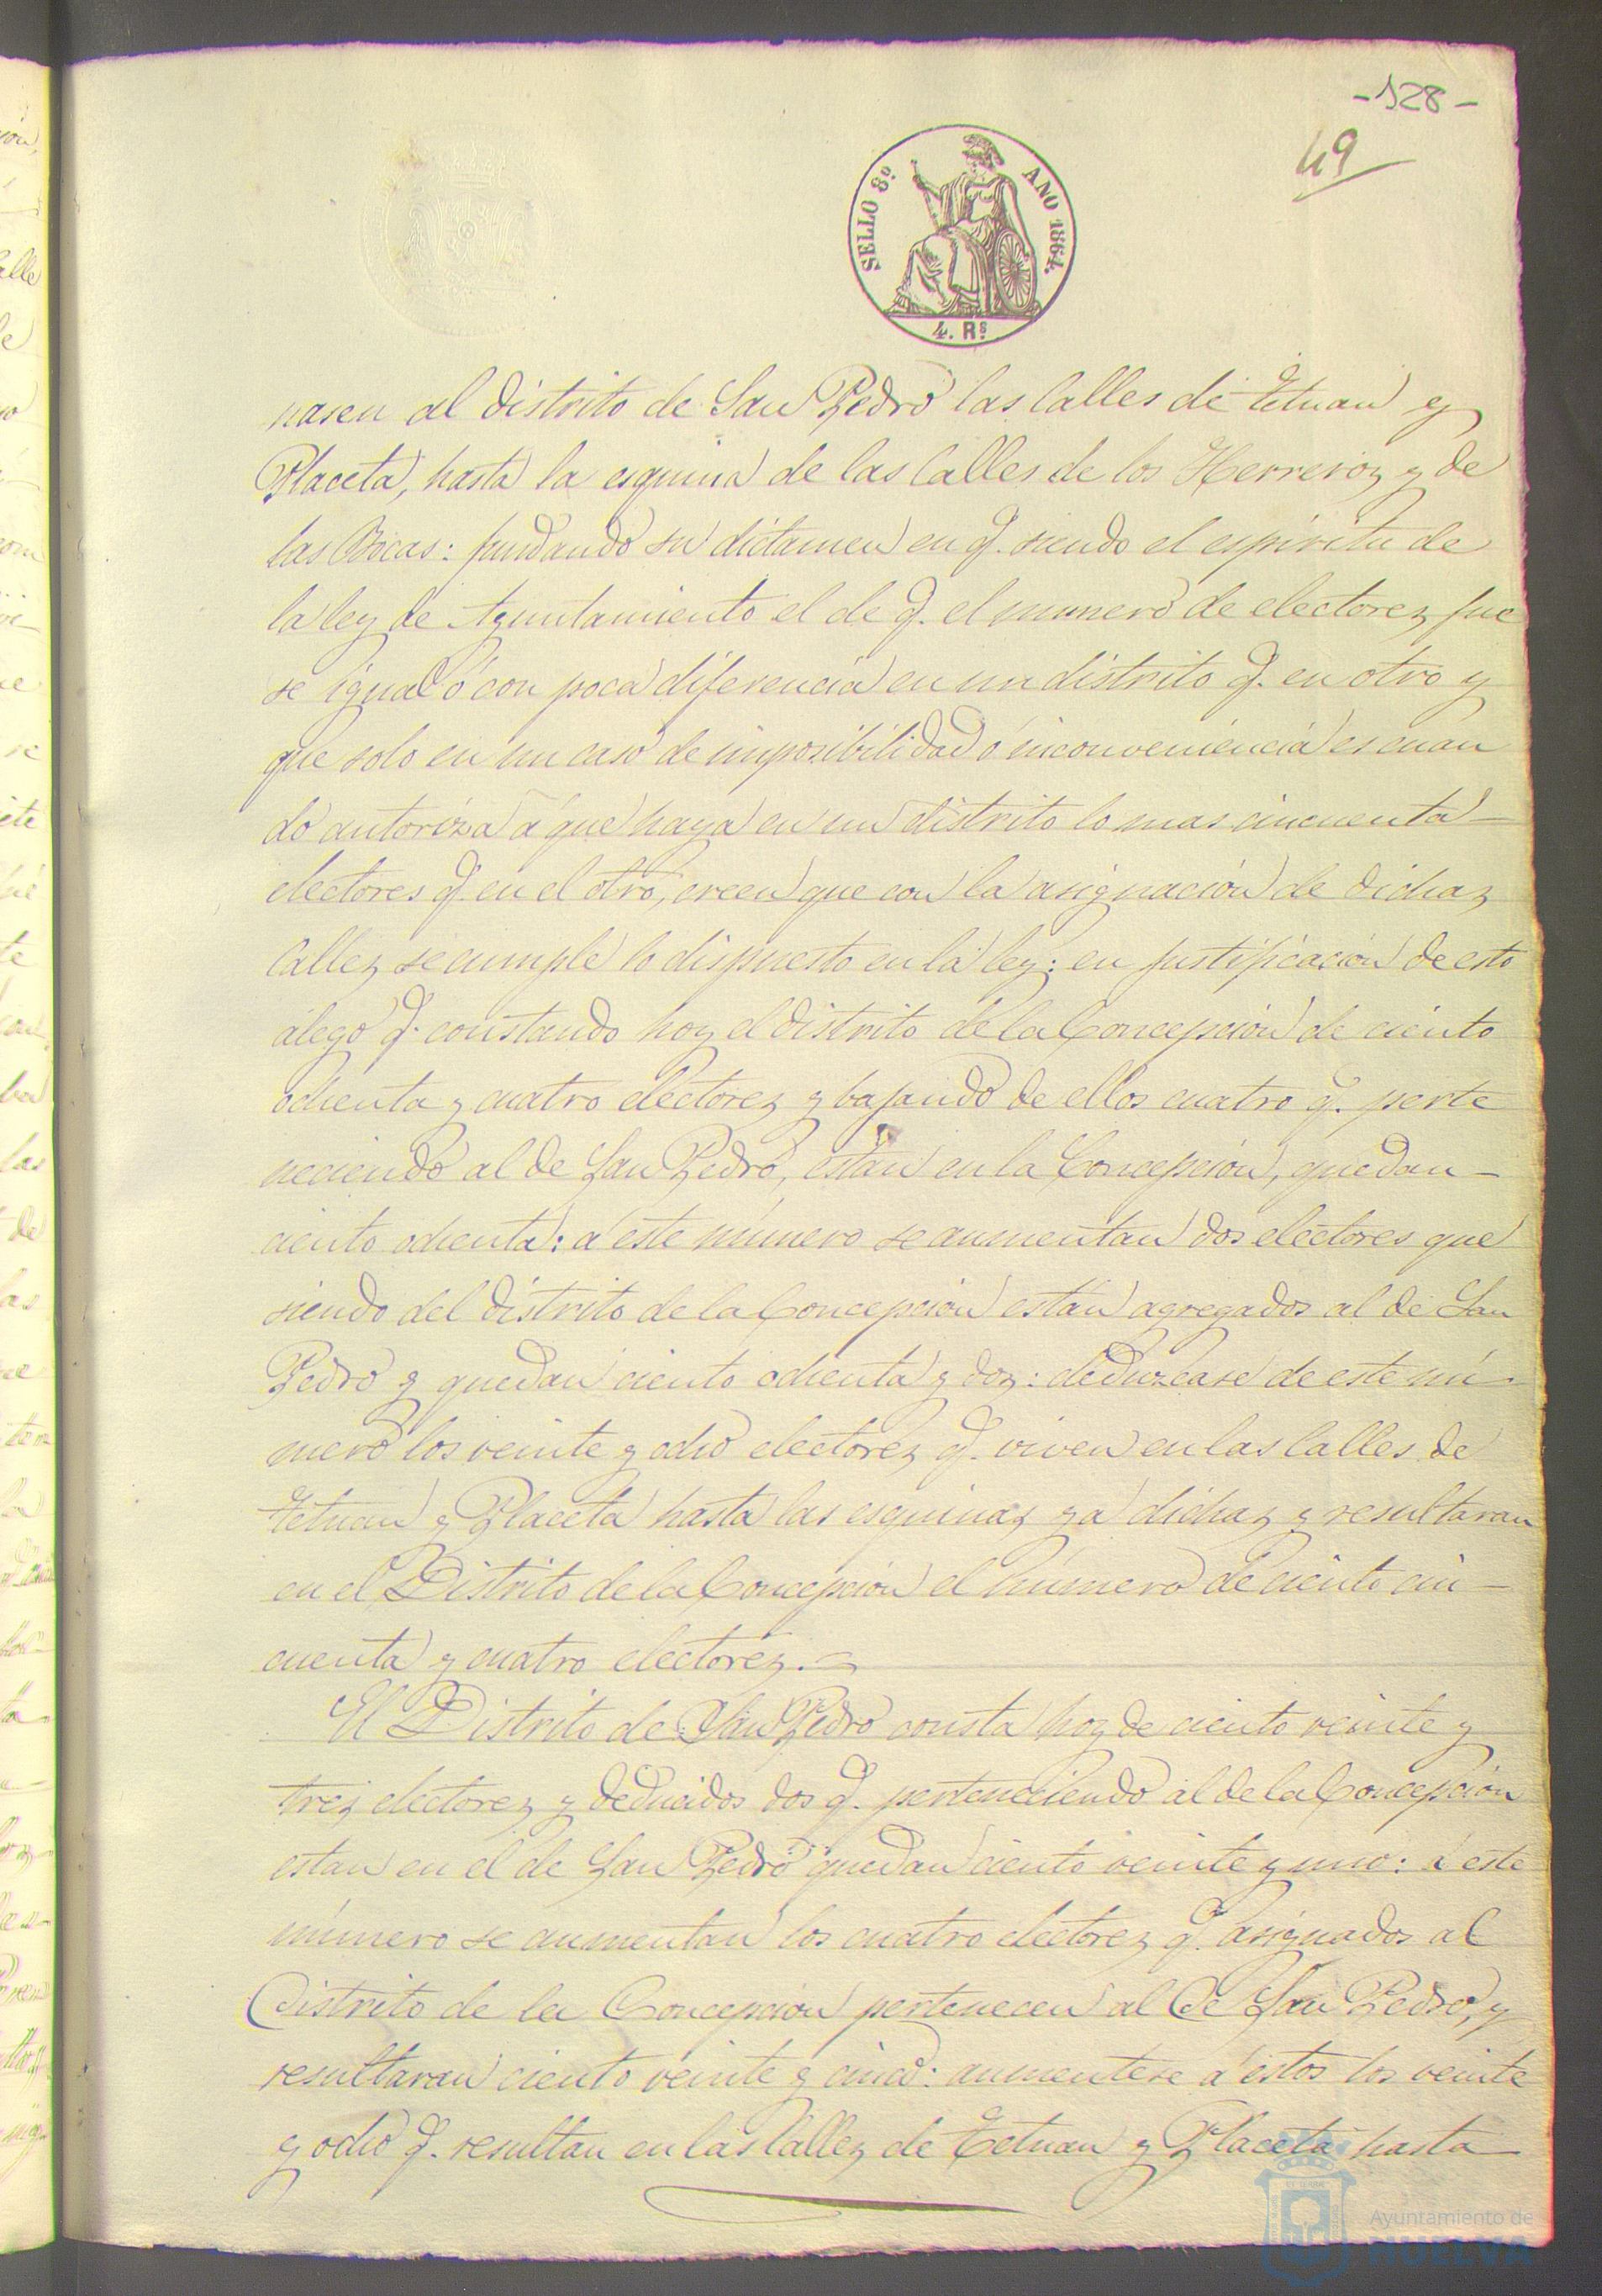 -128-
49
SELLO 8º AÑO 1864.
4. Rs
nasen al distrito de San Pedro las Calles de Tetuan y
Placeta, hasta la esquina de las Calles de los Herreros y de
las Bocas: fundando su dictamen en q. siendo el espiritu de
la ley de Ayuntamiento el de q. el numero de electores fue
se igual ó con poca diferencia en un distrito q. en otro y
que solo en un caso de imposibilidad ó inconveniencia es cuan
do autoriza á que haya en un distrito lo mas cincuenta
electores q. en el otro, creen que con la asignación de dichas
Calles se cumple lo dispuesto en la ley: en justificacion de esto
álego q. constando hoy el distrito de la Concepcion de ciento
ochenta y cuatro electores y bajando de ellos cuatro q. perte
neciendo al de San Pedro, están en la Concepción, quedan
ciento ochenta: a este número se aumentan dos electores que
siendo del distrito de la Concepcion están agregados al de San
Pedro y quedan ciento ochenta y dos: deduzcase de este nú
mero los veinte y ocho electores q. viven en las Calles de
Tetuan y Placeta hasta las esquinas ya dichas y resultaran
en el Distrito de la Concepción el número de ciento cin
cuenta y cuatro electores.
El Distrito de San Pedro consta hoy de ciento veinte y
tres electores y deducidos dos q. perteneciendo al de la Concepción
estan en el de San Pedro quedan ciento veinte y uno: á este
número se aumentan los cuatro electores q. asignados al
Distrito de la Concepcion pertenecen al de San Pedro, y
resultaran ciento veinte y cinco: aumentese á estos los veinte
y ocho q. resultan en las Calles de Tetuan y Placeta hasta
Ayuntamiento de
HUELVA